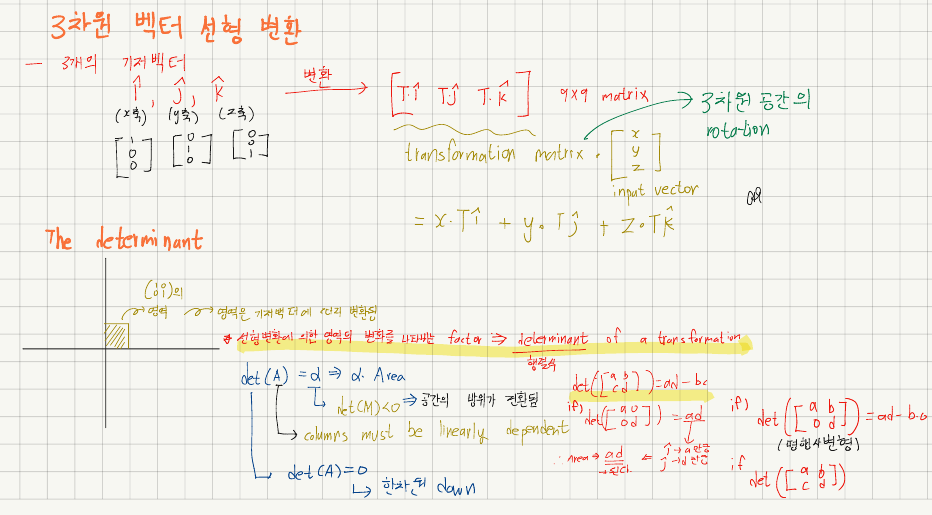 3차원 벡터 선형 변환
— 3개의 기저벡터
î, ĵ, k̂
(x축) (y축) (z축)
[1 0 0] [0 1 0] [0 0 1]
변환
[T·î Tĵ T·k̂] 9x9 matrix
3차원 공간의 rotation
transformation matrix · [x y z]
input vector
= x·Tî + y·Tĵ + z·Tk̂
The determinant
(1 0 0 1)의
영역 → 영역은 기저벡터에 변환됨
* 선형변환에 의한 영역의 변화를 나타내는 factor ⇒ determinant of a transformation
행렬식
det(A) = d ⇒ d· Area
det(M)<0 ⇒ 공간의 방위가 전환됨
columns must be linearly dependent
det(A)=0
한차원 down
det([a b c d])=ad-bc
if) det([a 0 0 d]) = ad
∴ Area → ad ← î→a만큼 ĵ→d만큼
→ 된다.
if) det([a b 0 d])=ad-b·0
(평행사변형)
if
det([a b c d])